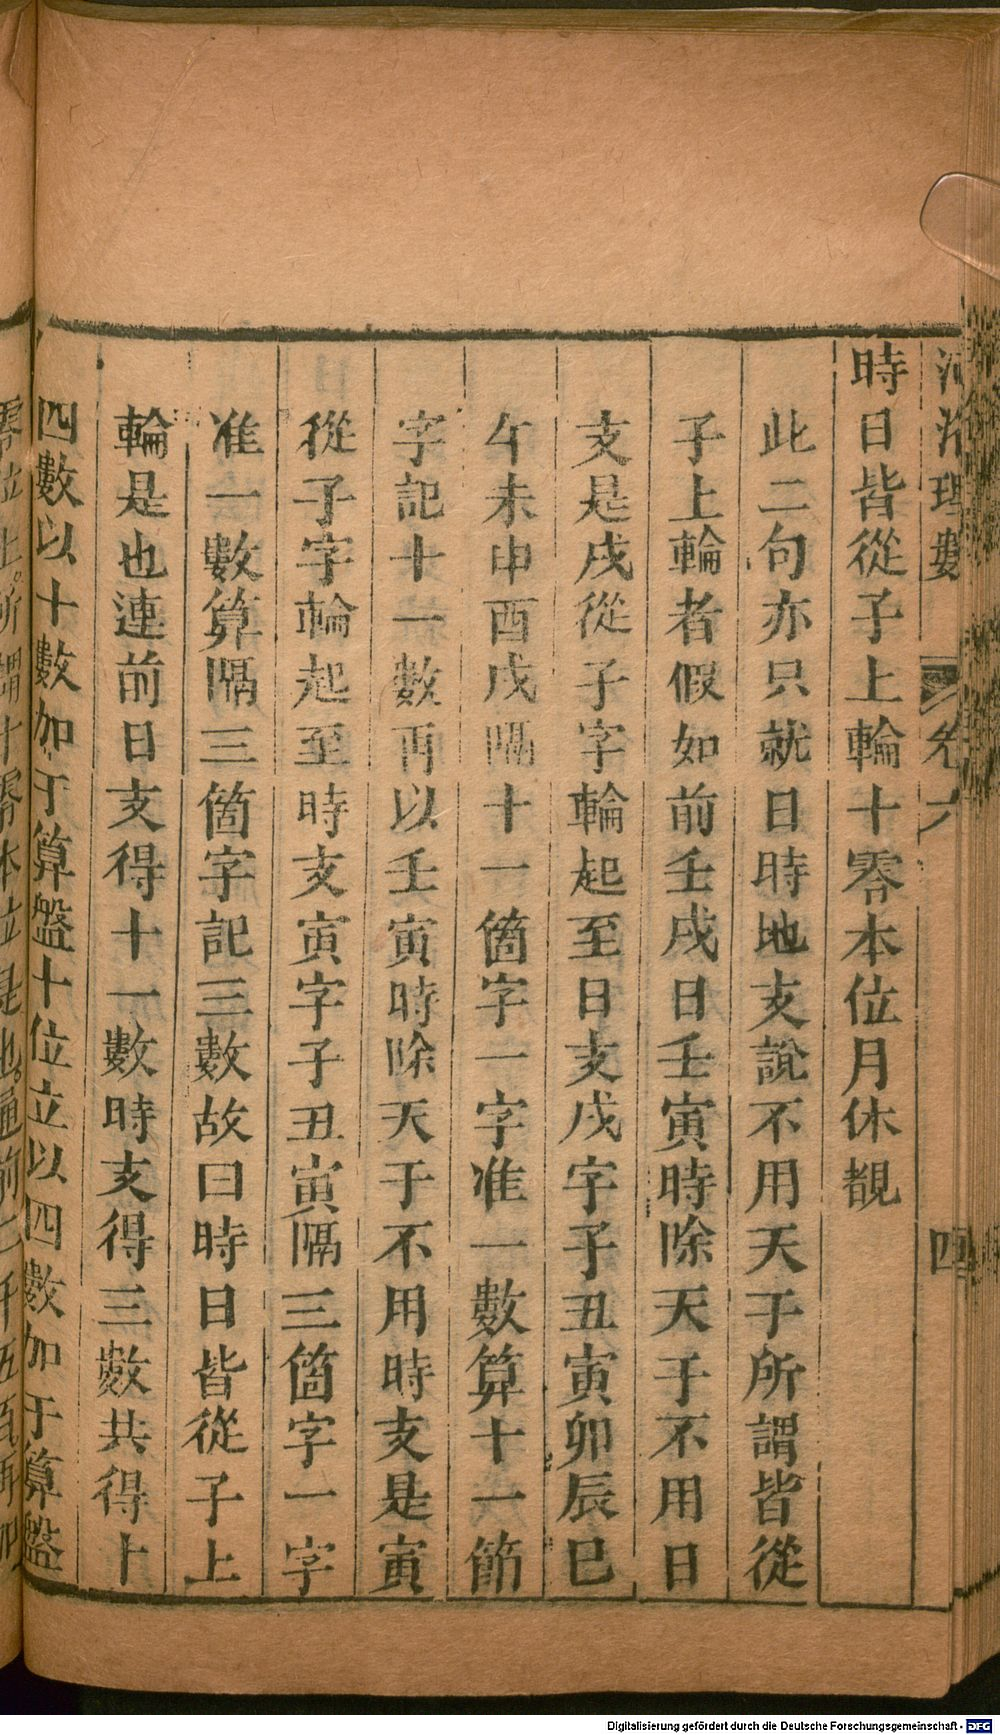 河洛理數
卷六
四
時日皆從子上輪十零本位月休覩
此二句亦只就日時地支說不用天干所謂皆從
子上輪者假如前壬戌日壬寅時除天干不用日
支是戌從子字輪起至日支戌字子丑寅卯辰巳
午未申酉戌隔十一箇字一字准一數算十一箇
字記十一數再以壬寅時除天干不用時支是寅
從子字輪起至時支寅字子丑寅隔三箇字一字
准一數算隔三箇字記三數故曰時日皆從子上
輪是也連前日支得十一數時支得三數共得十
四數以十數加于算盤十位立以四數加于算盤
零位上所謂十零本位是也通前二千五百
Digitalisierung gefördert durch die Deutsche Forschungsgemeinschaft - DFG